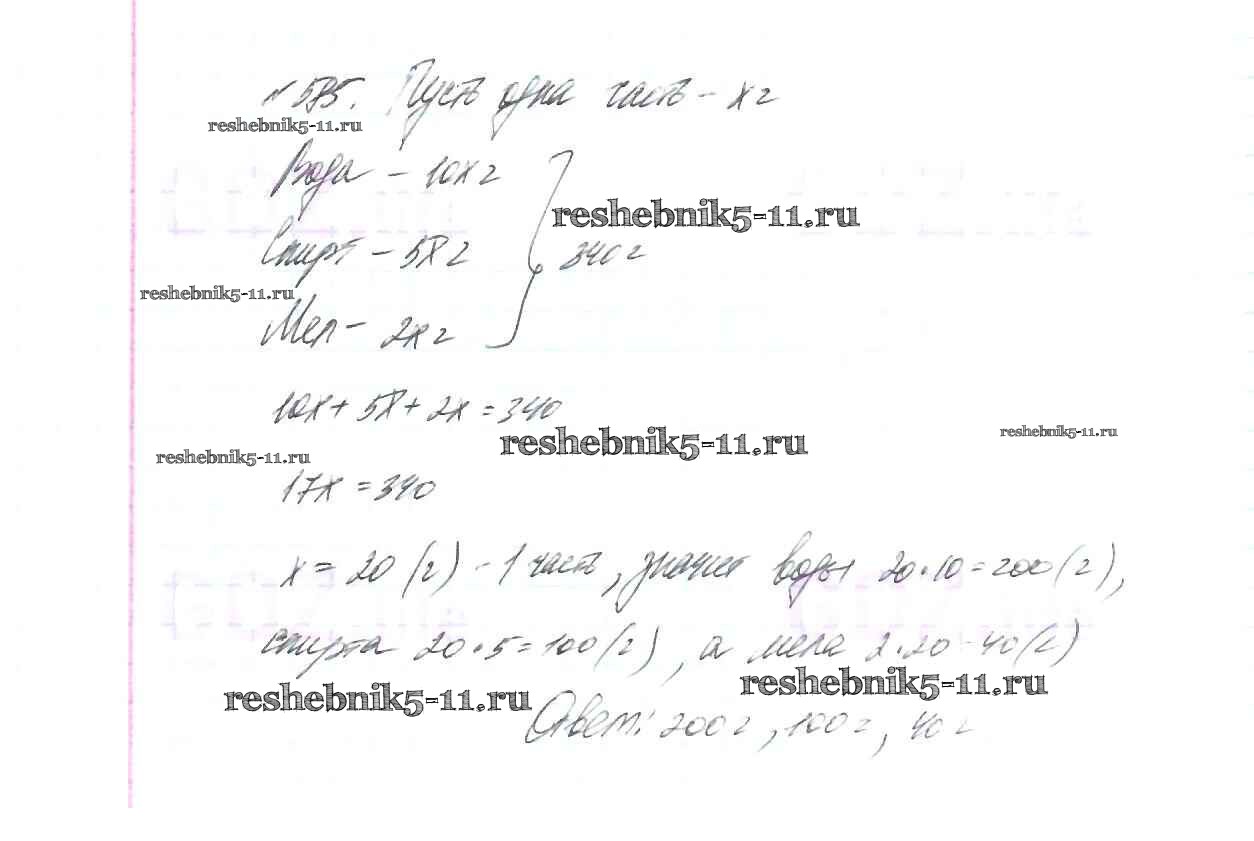 № 575. Пусть одна часть – x г
reshebnik5-11.ru
Вода – 10x г
reshebnik5-11.ru
Спирт – 5x г
340 г
reshebnik5-11.ru
Мел – 2x г
10x + 5x + 2x = 340
reshebnik5-11.ru
reshebnik5-11.ru
reshebnik5-11.ru
17x = 340
x = 20 (г) – 1 часть, значит воды 20·10 = 200 (г),
спирта 20·5 = 100 (г), а мела 2·20 = 40 (г)
reshebnik5-11.ru
reshebnik5-11.ru
Ответ: 200 г, 100 г, 40 г